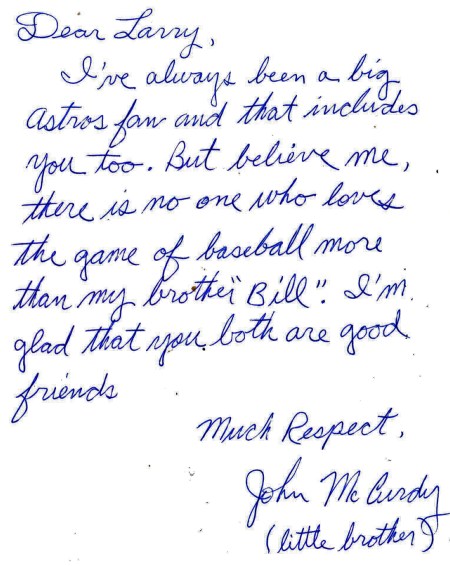 Dear Larry,
I've always been a big
Astros fan and that includes
you too. But believe me,
there is no one who loves
the game of baseball more
than my brother "Bill". I'm
glad that you both are good
friends
Much Respect,
John McCurdy
(little brother)